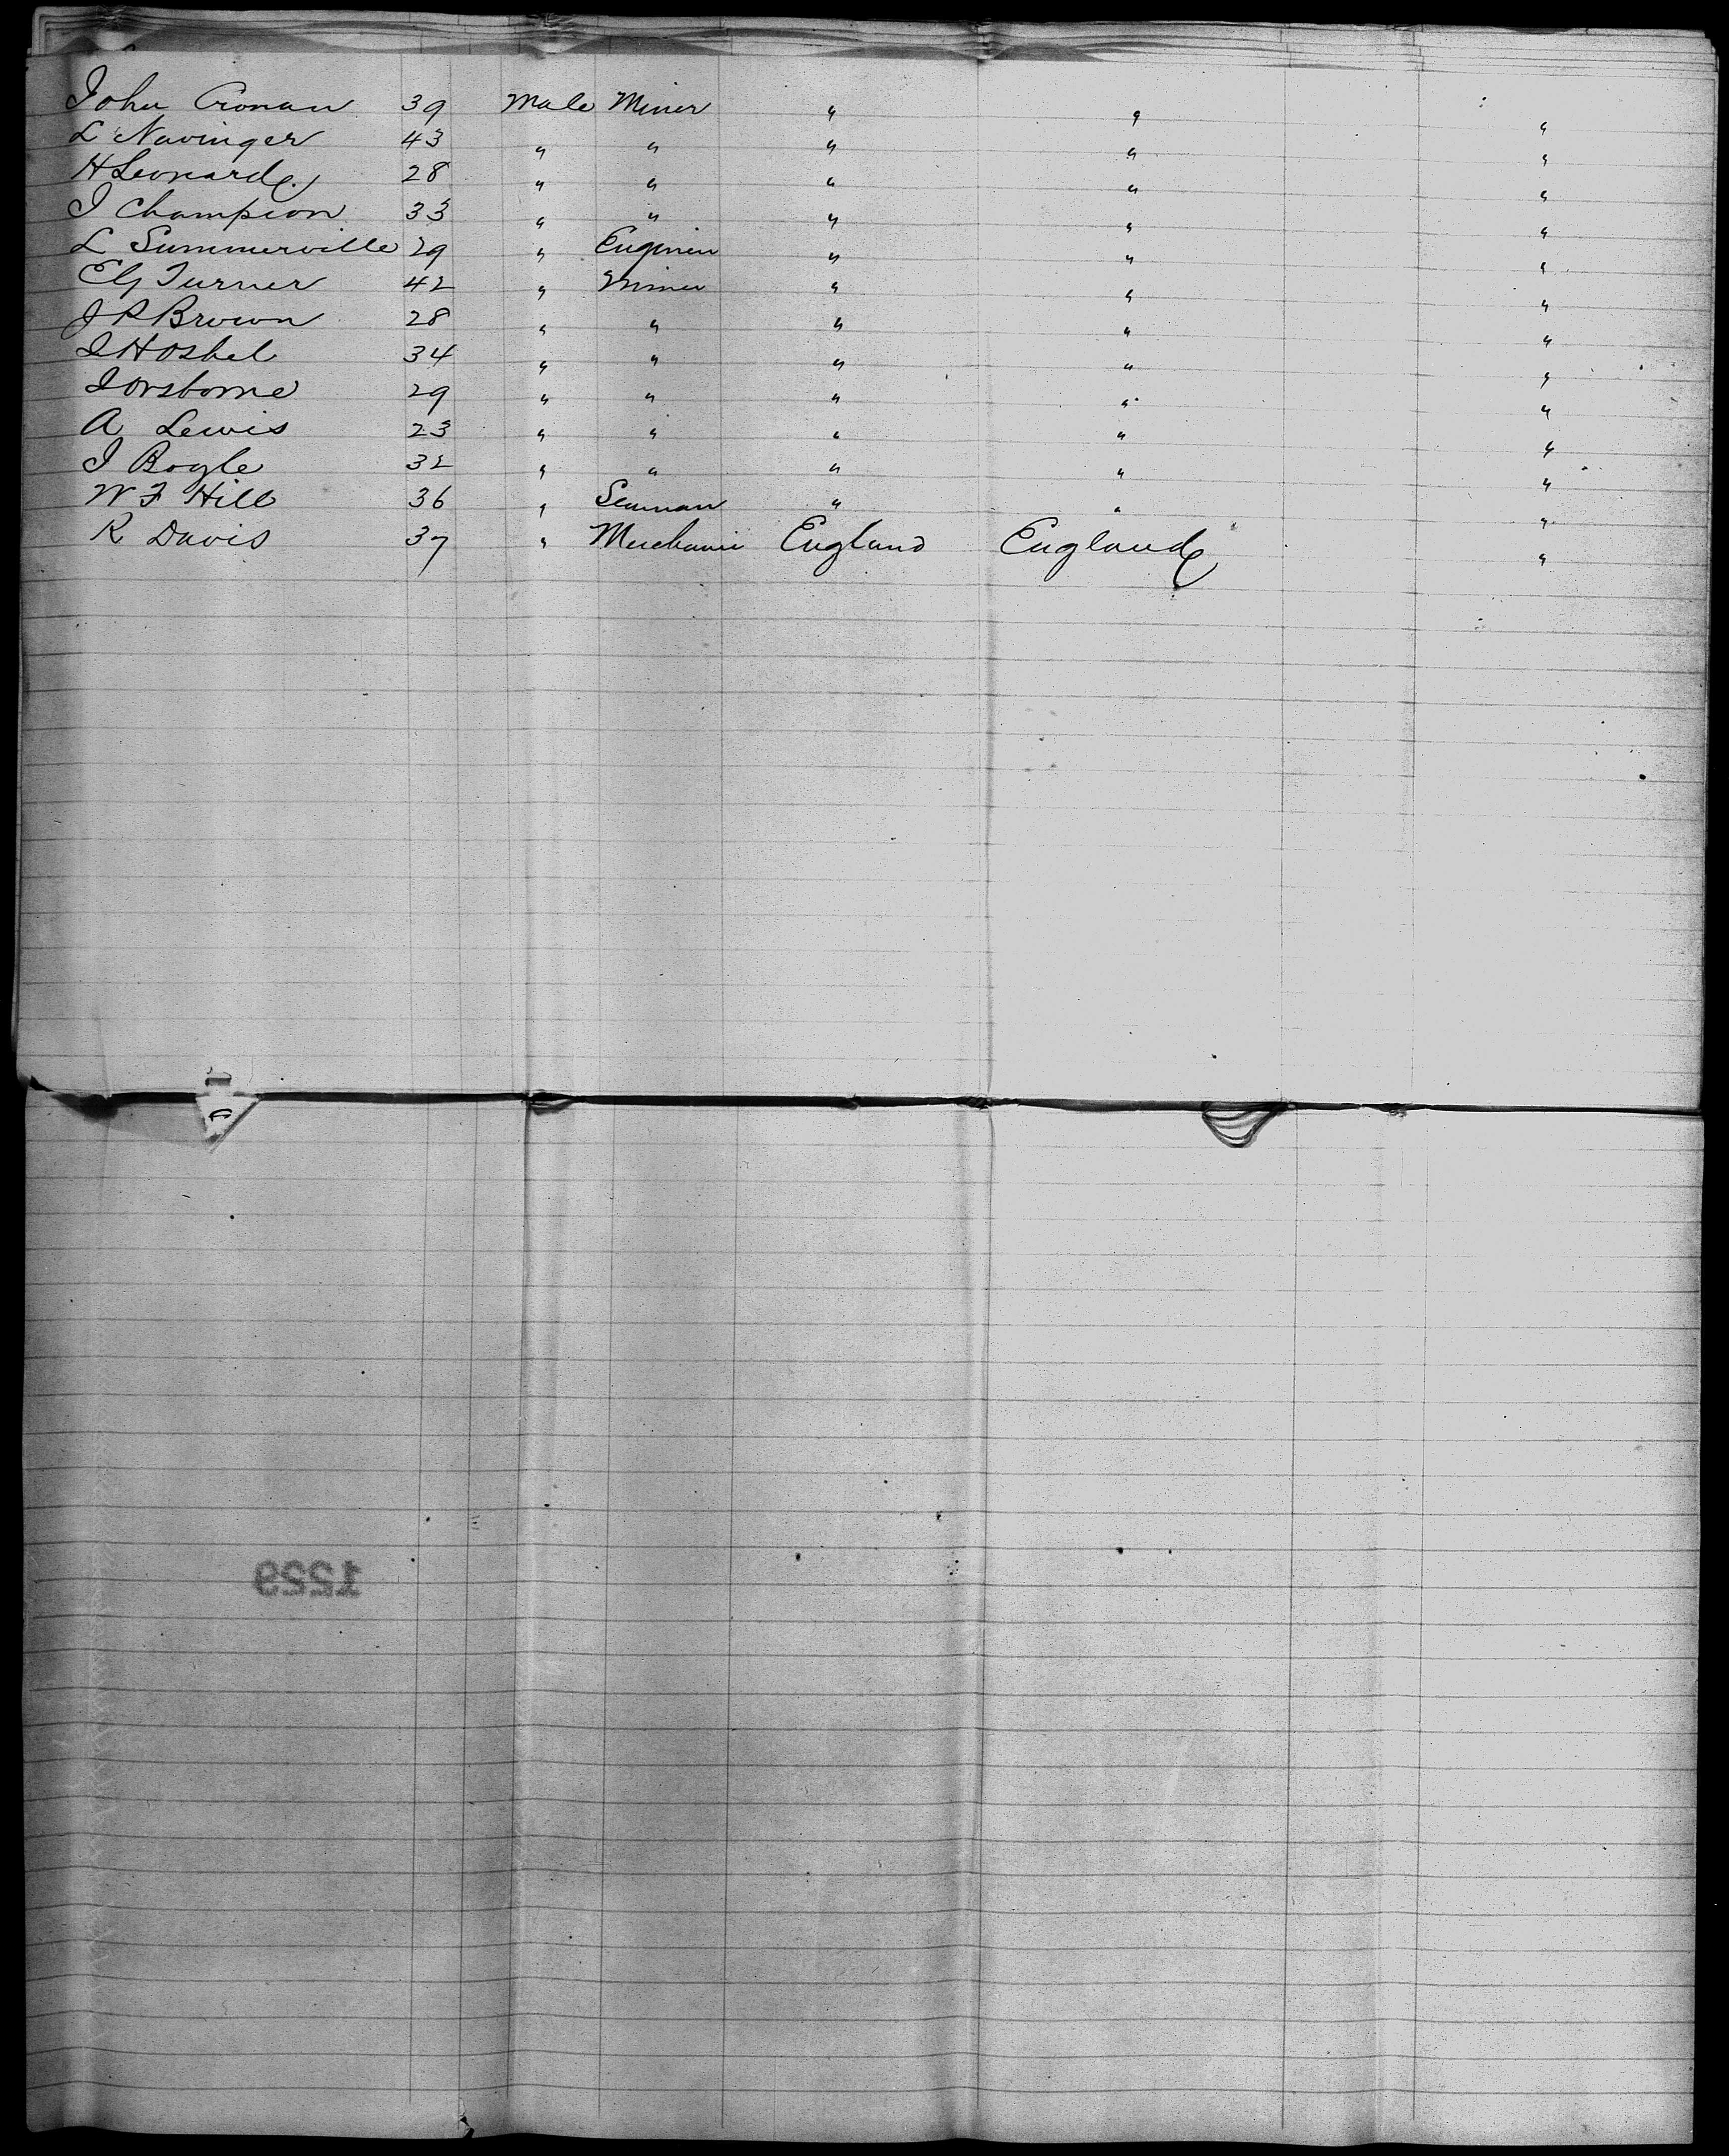 John Cronan 39 Male Miner " " "
L Navinger 43 " " " " "
H Leonard 28 " " " " "
J Champion 33 " " " " "
L Summerville 29 " Engineer " " "
E G Turner 42 " Miner " " "
J P Brown 28 " " " " "
J H Oshel 34 " " " " "
J Orsborne 29 " " " " "
A Lewis 23 " " " " "
J Bogle 32 " " " " "
W F Hill 36 " Seaman " " "
R Davis 37 " Mechanic England England "
1229